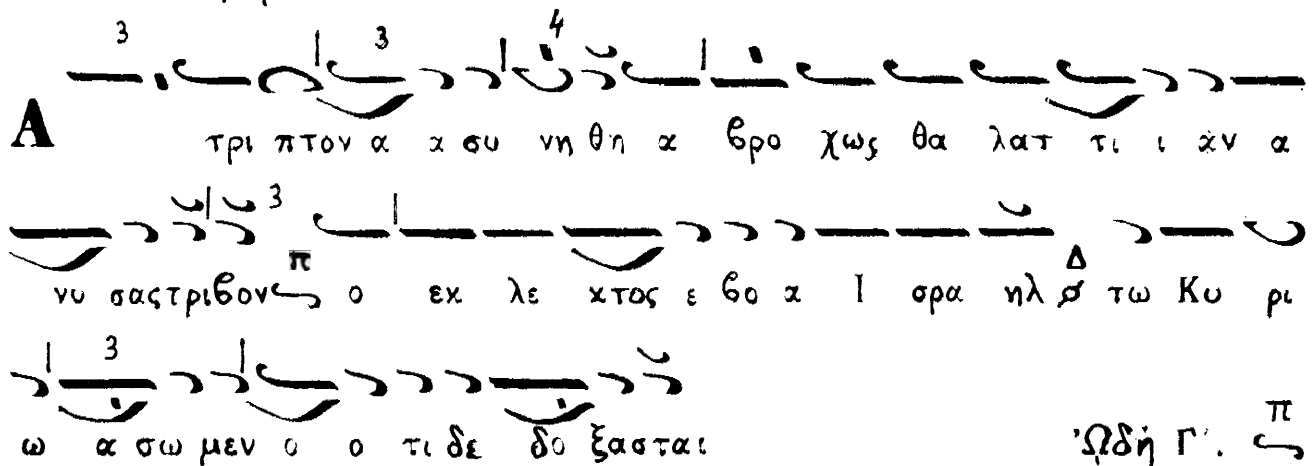 Α τρι πτον α α συ νη θη α βρο χως θα λατ τι ι αν α
νυ σας τριβον π ο εκ λε κτος ε βο α Ι σρα ηλ Δ τω Κυ ρι
ω α σω μεν ο ο τι δε δο ξασται Ὠδή Γ΄. π